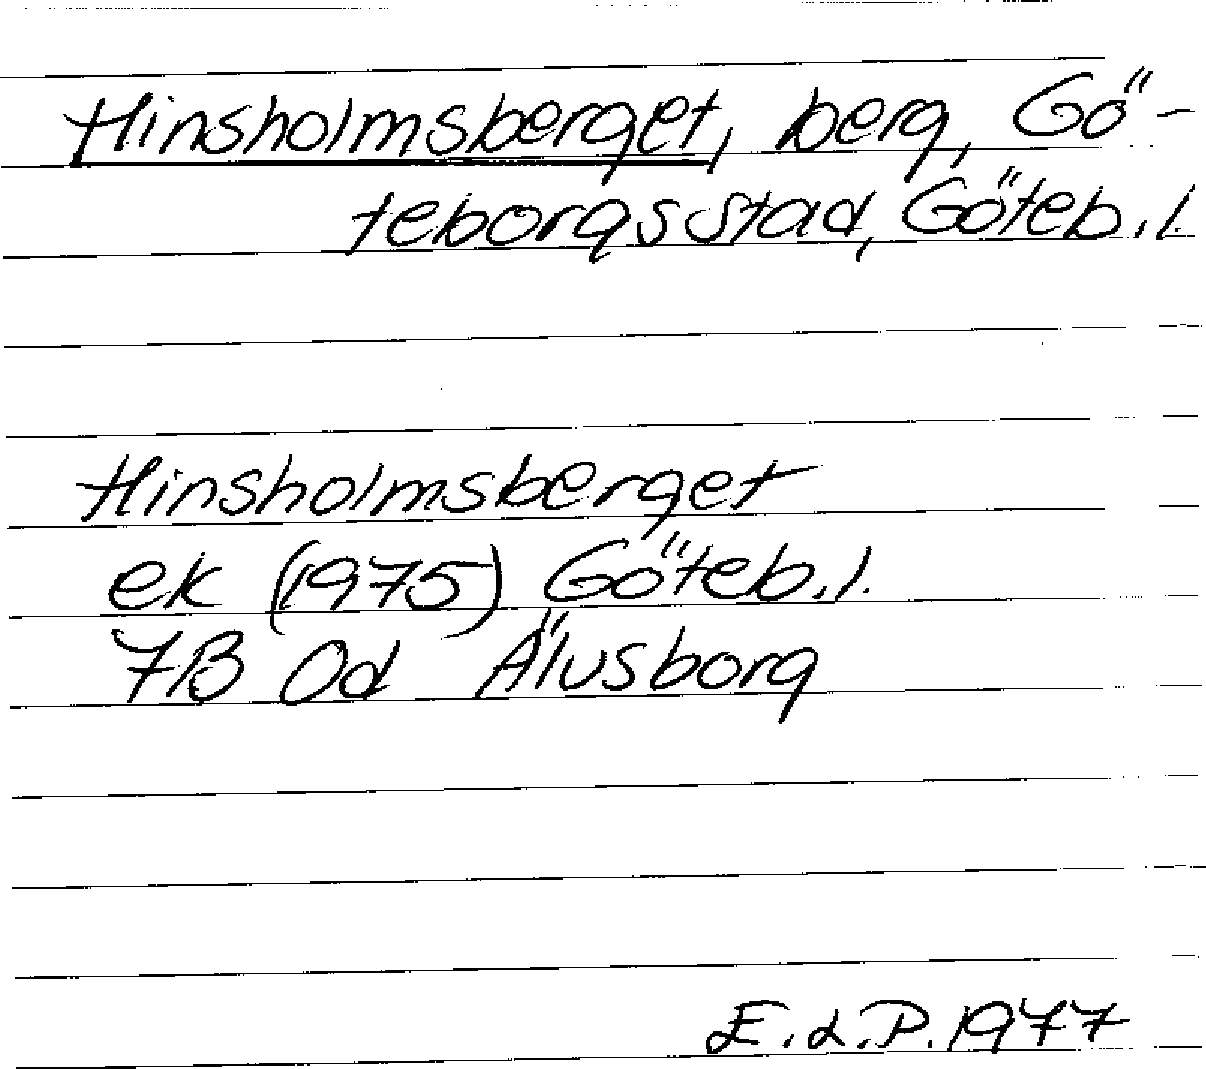 Hinsholmsberget, berg, Gö-
teborgs stad, Göteb.l.
Hinsholmsberget
ek (1975) Göteb.l.
7B 0d Älvsborg
E.d.P. 1977